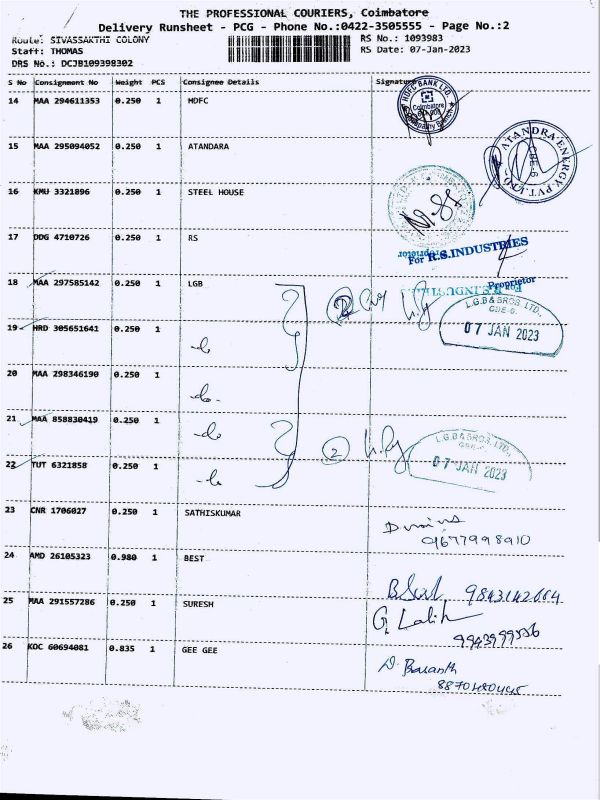 THE PROFESSIONAL COURIERS, Coimbatore
Delivery Runsheet - PCG - Phone No.:0422-3505555 - Page No.:2
Route: SIVASSAKTHI COLONY
RS No.: 1093983
Staff: THOMAS
RS Date: 07-Jan-2023
DRS No.: DCJB109398302
S No Consignment No Weight PCS Consignee Details Signature
14 MAA 294611353 0.250 1 HDFC
HDFC BANK LTD.
Coimbatore
15 MAA 295094052 0.250 1 ATANDARA
ATANDRA ENERGY PVT. LTD
CBE-6
16 KMU 3321896 0.250 1 STEEL HOUSE
17 DDG 4710726 0.250 1 RS
For R.S.INDUSTRIES
Proprietor
18 MAA 297585142 0.250 1 LGB
L.G.B & BROS. LTD.,
CBE-6.
07 JAN 2023
19 HRD 305651641 0.250 1
20 MAA 298346190 0.250 1
-do-
21 MAA 858830419 0.250 1
-do
2
L.G.B & BROS. LTD.,
CBE-6.
07 JAN 2023
22 TUT 6321858 0.250 1
23 CNR 1706027 0.250 1 SATHISKUMAR
9677998910
24 AMD 26105323 0.980 1 BEST
25 MAA 291557286 0.250 1 SURESH
G. Lalith
26 KOC 60694081 0.835 1 GEE GEE